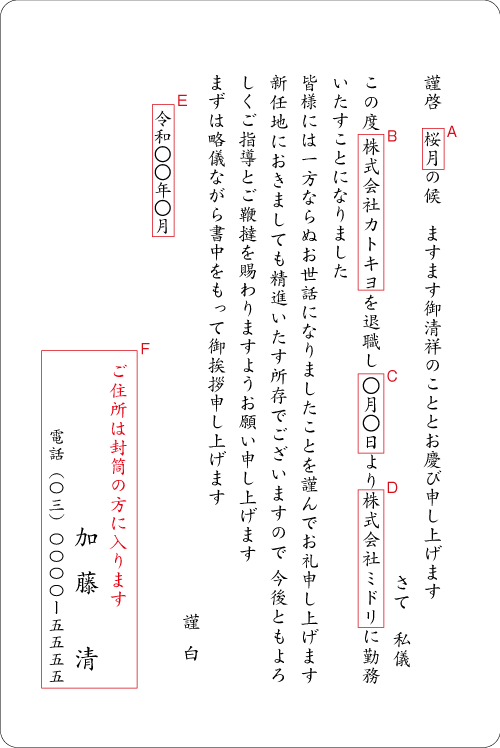 謹啓 桜月の候 ますます御清祥のこととお慶び申し上げます
A
さて 私儀
この度株式会社カトキヨを退職し〇月〇日より株式会社ミドリに勤務
B
C
D
いたすことになりました
皆様には一方ならぬお世話になりましたことを謹んでお礼申し上げます
新任地におきましても精進いたす所存でございますので 今後ともよろ
しくご指導とご鞭撻を賜わりますようお願い申し上げます
まずは略儀ながら書中をもって御挨拶申し上げます
謹白
E
令和〇〇年〇月
F
ご住所は封筒の方に入ります
加藤 清
電話（〇三）〇〇〇〇ー五五五五